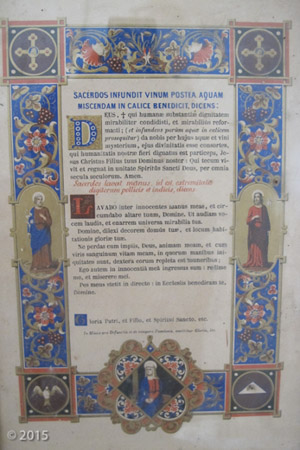 SACERDOS INFUNDIT VINUM POSTEA AQUAM
MISCENDAM IN CALICE BENEDICIT, DICENS:
DEUS, ✝ qui humanæ substantiæ dignitatem
mirabiliter condidisti, et mirabilius refor-
masti; (et infundens parum aquæ in calicem
prosequitur) da nobis per hujus aquæ et vini
mysterium, ejus divinitatis esse consortes,
qui humanitatis nostræ fieri dignatus est particeps, Je-
sus Christus Filius tuus Dominus noster: Qui tecum vi-
vit et regnat in unitate Spiritûs Sancti Deus, per omnia
sæcula sæculorum. Amen.
Sacerdos lavat manus, id est, extremitates
digitorum pollicis et indicis, dicens
LAVABO inter innocentes manus meas, et cir-
cumdabo altare tuum, Domine. Ut audiam
vocem laudis, et enarrem universa mirabilia tua.
Domine, dilexi decorem domûs tuæ, et locum habi-
tationis gloriæ tuæ.
Ne perdas cum impiis, Deus, animam meam, et cum
viris sanguinum vitam meam, in quorum manibus ini-
quitates sunt, dextera eorum repleta est muneribus:
Ego autem in innocentiâ meâ ingressus sum: redime
me, et miserere mei.
Pes meus stetit in directo: in Ecclesiis benedicam te,
Domine.
Gloria Patri, et Filio, et Spiritui Sancto, etc.
© 2015